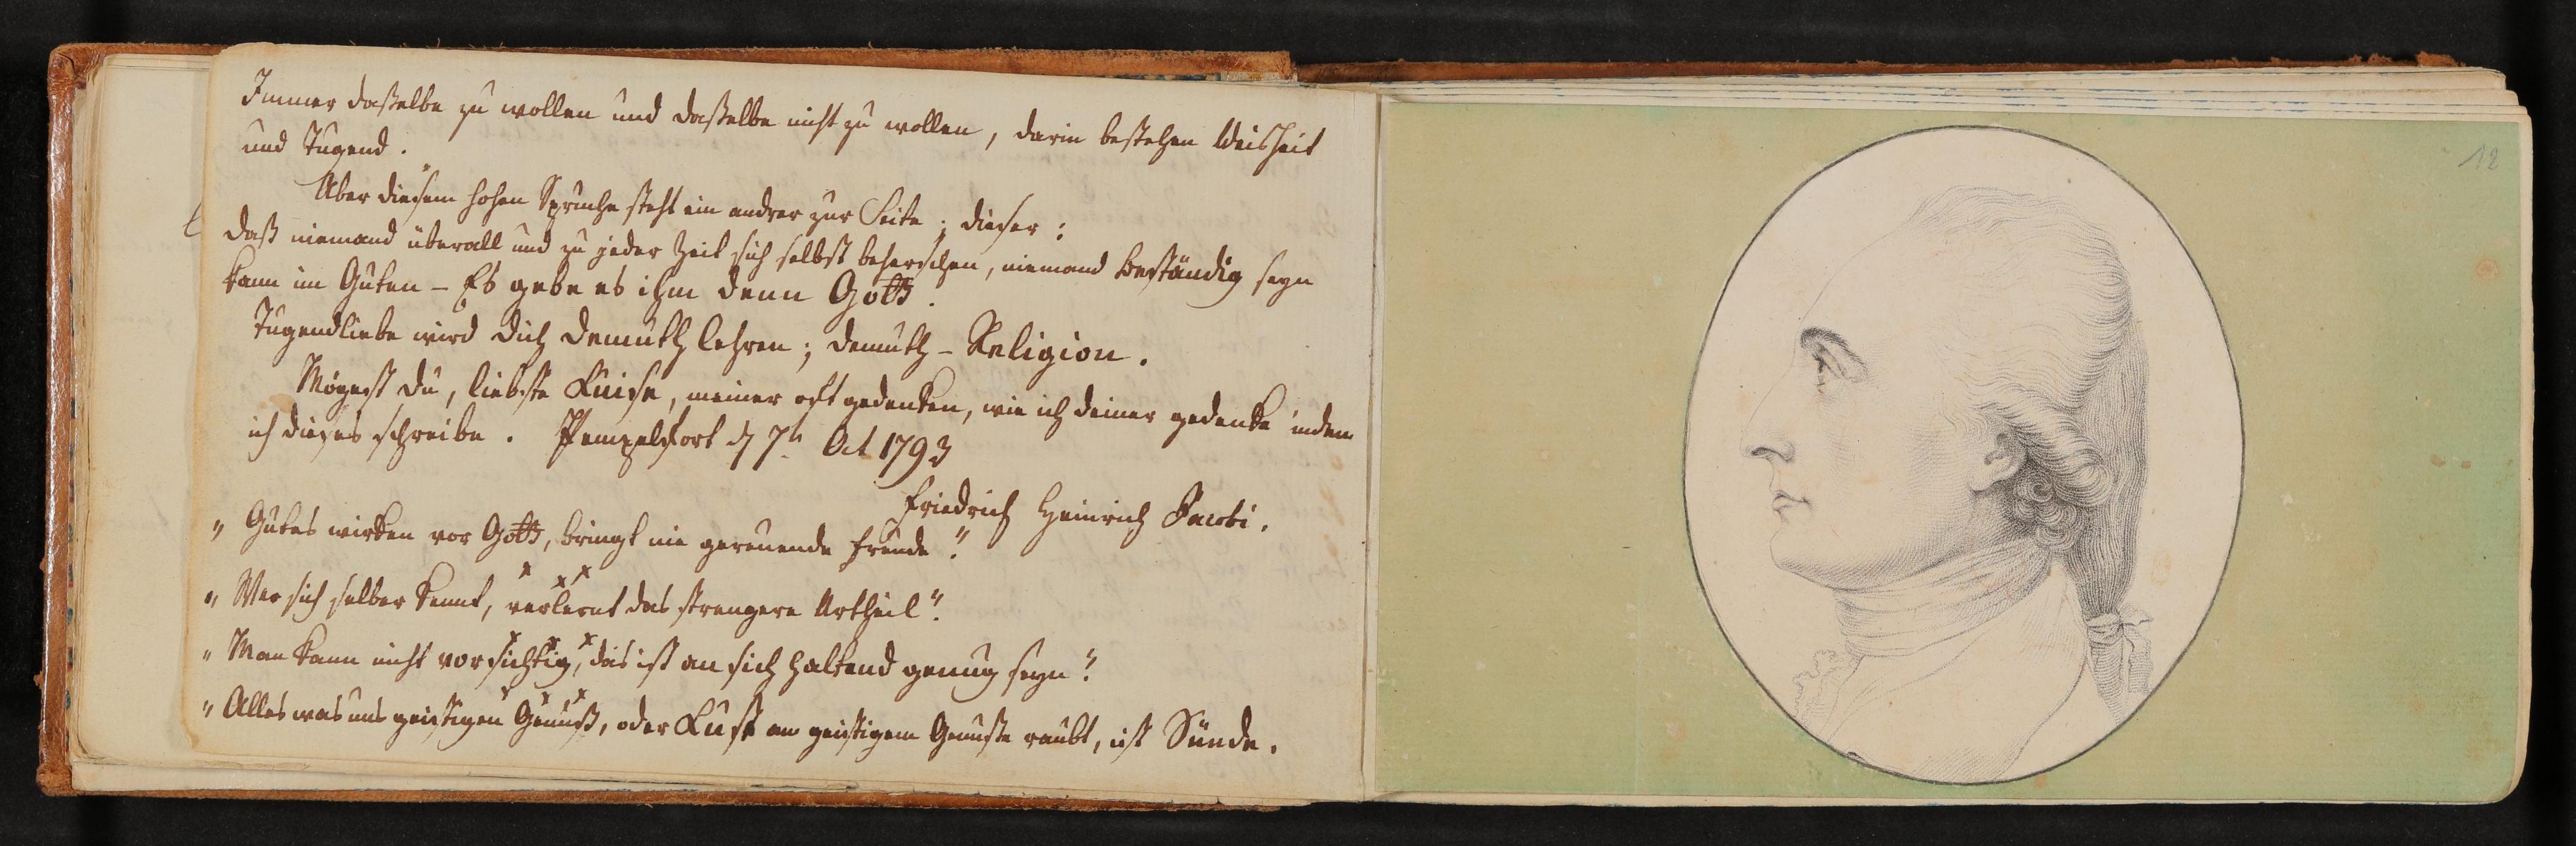 Immer daßelbe zu wollen und daßelbe nicht zu wollen, darin bestehen Weisheit
und Tugend.
Aber diesem hohen Spruche steht ein andrer zur Seite; dieser:
daß niemand überall und zu jeder Zeit sich selbst beherschen, niemand beständig seyn
kann im Guten – Es gebe es ihm denn Gott.
Tugendliebe wird dich Demuth lehren; Demuth – Religion.
Mögest du, liebste Luise, meiner oft gedenken, wie ich deiner gedenke indem
ich dieses schreibe. Pempelfort d 7t Oct 1793
Friedrich Heinrich Jacobi.
„Gutes wirken vor Gott, bringt nie gereuende Freude“.
x x x
„Wer sich selber kennt, verlernt das strengere Urtheil“.
x x x
„Man kann nicht vorsichtig, das ist an sich haltend genug seyn“.
x x x
„Alles was uns geistigen Genuß, oder Lust am geistigem Genuße raubt, ist Sünde.
12